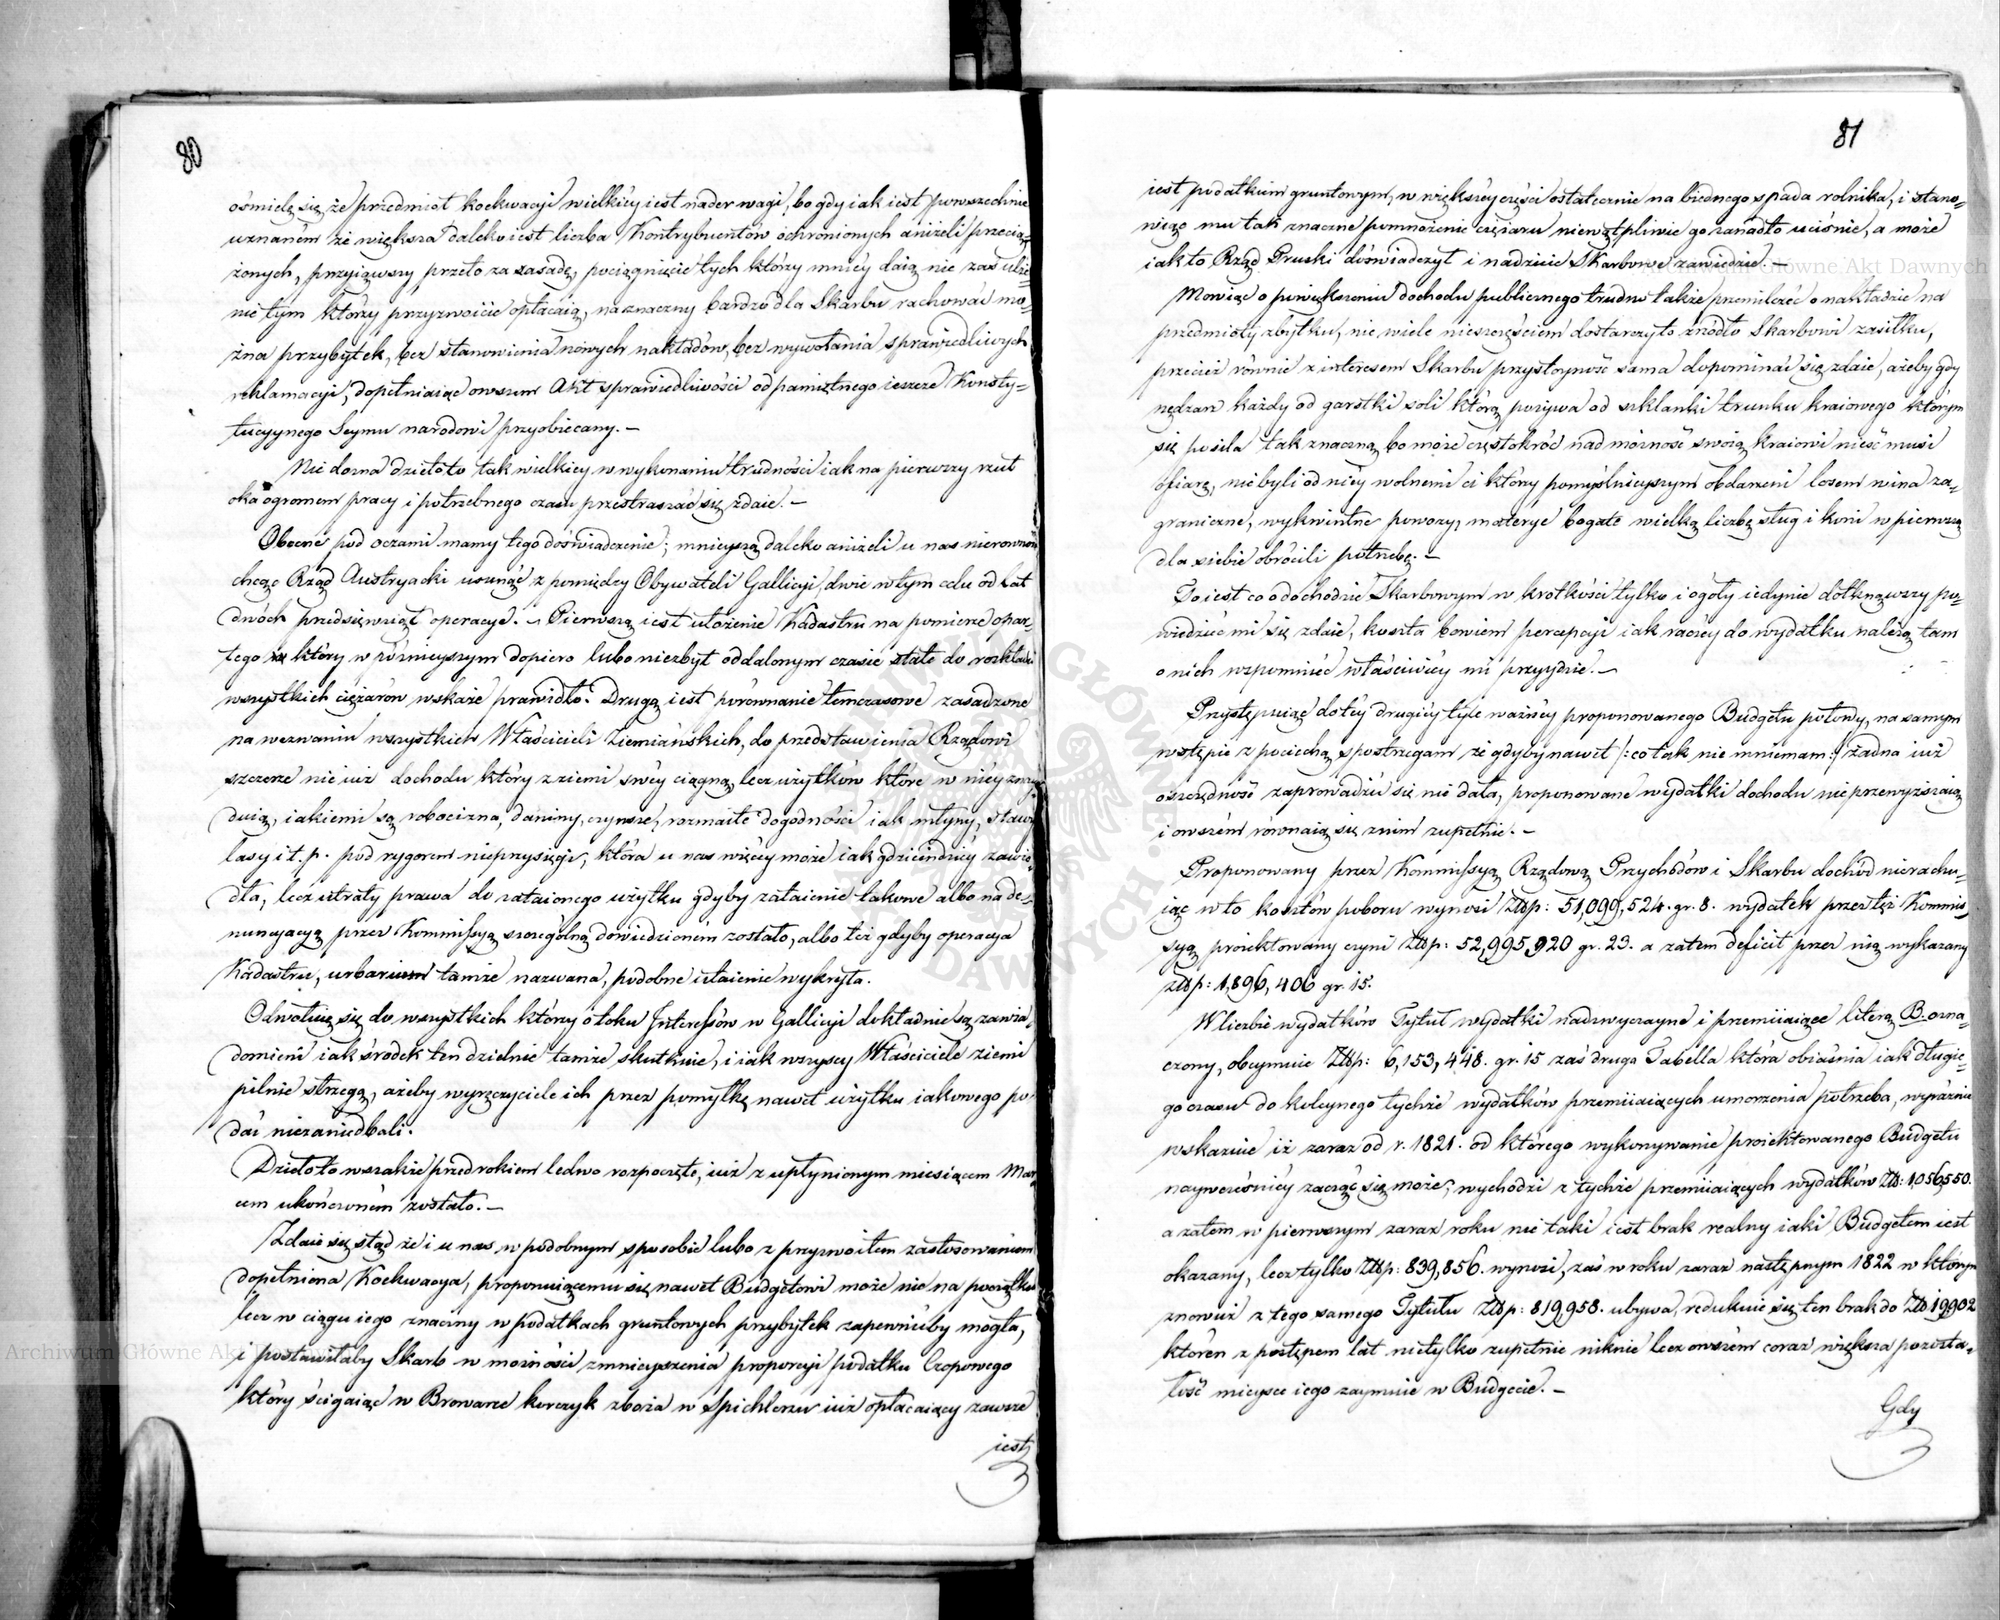 80
ośmielę się, że przedmiot koekwacyi wielkiéy iest nader wagi, bo gdy iak iest powszechnie
uznaném że większa daleko iest liczba Kontrybuentów ochronionych aniżeli przecią=
żonych, przyiąwszy przeto za zasadę, pociągnięcie tych którzy mniéy daią nie zaś ulże=
nie tym którzy przyzwoicie opłacaią, na znaczny bardzo dla Skarbu rachować mo=
żna przybytek, bez stanowienia nowych nakładów, bez wywołania sprawiedliwych
reklamacyi, dopełniaiąc owszem Akt sprawiedliwości od pamiętnego ieszcze Konsty=
tucyynego Seymu narodowi przyobiecany. —
Nie dozna dzieło to tak wielkiey w wykonaniu trudności iak na pierwszy rzut
oka ogromem pracy i potrzebnego czasu przestraszać się zdaie. —
Obecne pod oczami mamy tego doświadczenie; mnieyszą daleko aniżeli u nas nierowność
chcąc Rząd Austryacki usunąć z pomiędzy Obywateli Gallicyi, dwie w tym celu od lat
dwóch przedsięwziął operacye. — Pierwszą iest ułożenie Kadastru na pomiarze opar=
tego który w poznieyszym dopiero lubo niezbyt oddalonym czasie stałe do rozkładu
wszystkich ciężarów wskaże prawidło. Drugą iest porównanie temczasowe zasadzone
na wezwaniu wszystkich Właścicieli Ziemiańskich, do przedstawienia Rządowi
szczerze nie iuż dochodu który z ziemi swéy ciągną, lecz użytków które w niéy znay=
duią, iakiemi są robocizna, daniny, czynsze, rozmaite dogodności iak młyny, stawy
lasy i t. p. pod rygorem nieprzysięgi, która u nas więcéy może iak gdzieindziéy zawio=
dła, lecz utraty prawa do zataionego użytku gdyby zataienie takowe albo na de=
nuncyacyą przez Kommissyą szczególną dowiedzioném zostało, albo też gdyby operacya
Kadastru, urbarium tamże nazwana, podobne utaienie wykryła.
Odwołuię się do wszystkich którzy o toku Interessów w Gallicyi dokładnie są zawia=
domieni iak środek ten dzielnie tamże skutkuie, i iak wszyscy Właściciele ziemi
pilnie strzegą, ażeby wyręczyciele ich przez pomyłkę nawet użytku iakowego po=
dać niezaniedbali.
Dzieło to wszakże przed rokiem ledwo rozpoczęte, iuż z upłynionym miesiącem Mar=
cem ukończoném zostało. —
Zdaie się ztąd że i u nas w podobnym sposobie lubo z przyzwoitem zastosowaniem
dopełniona Koekwacya, proponuiącemu się nawet Budgetowi może nie na początku
lecz w ciągu iego znaczny w podatkach gruntowych przybytek zapewnićby mogła,
i postawiłaby Skarb w możności zmnieyszenia proporcyi podatku Czopowego
który ścigaiąc w Browarze korczyk zboża w Spichlerzu iuż opłacaiący zawsze
iest
81
iest podatkiem gruntowym, w większéy części ostatecznie na biednego spada rolnika, i stano=
wiąc mu tak znaczne pomnożenie ciężaru niewątpliwie go zanadto uciśnie, a może
iak to Rząd Pruski doświadczył i nadzieie Skarbowe zawiedzie. —
Mowiąc o powiększeniu dochodu publicznego trudno także przemilczeć o nakładzie na
przedmioty zbytku, nie wiele nieszczęściem dostarczy to źródło Skarbowi zasiłku,
przecież równie z interesem Skarbu przystoyność sama dopominać się zdaie, ażeby gdy
nędzarz każdy od garstki soli którą pożywa od szklanki trunku kraiowego którym
się posila tak znaczną, bo może częstokroć nad możność swoią kraiowi nieść musi
ofiarę, nie byli od niéy wolnemi ci którzy pomyślnieyszym obdarzeni losem wina za=
graniczne, wykwintne powozy, materye bogate wielką liczbę sług i koni w pierwszą
dla siebie obrócili potrzebę. —
To iest co o dochodzie Skarbowym w krotkości tylko i ogóły iedynie dotknąwszy po=
wiedzieć mi się zdaie, koszta bowiem percepcyi iak raczéy do wydatku należą tam
o nich wspomnieć właściwiéy mi przyydzie. —
Przystępuiąc do téy drugiéy tyle ważnéy proponowanego Budgetu połowy, na samym
wstępie z pociechą spostrzegam że gdyby nawet /: co tak nie mniemam :/ żadna iuż
oszczędność zaprowadzić się nie dała, proponowane wydatki dochodu nieprzewyższaią
i owszem równaią się z nim zupełnie. —
Proponowany przez Kommissyą Rządową Przychodów i Skarbu dochód nierachu=
iąc w to kosztów poboru wynosi Złłp: 51,099,524. gr. 8. wydatek przez też Kommis=
syą proiektowany czyni Złłp: 52,995,920 gr. 23. a zatem deficit przez nią wykazany
złłp: 1,896,406 gr. 15.
W liczbie wydatków Tytuł wydatki nadzwyczayne i przemiiaiące literą B. ozna=
czony, obeymuie Złłp: 6,153,448. gr. 15 zaś druga Tabella która obiaśnia iak długie=
go czasu do koleynego tychże wydatków przemiiaiących umorzenia potrzeba, wyraźnie
wskazuie iż zaraz od r. 1821. od którego wykonywanie proiektowanego Budgetu
nayweześniéy zacząć się może, wychodzi z tychże przemiiaiących wydatków Złł: 1,056,550.
a zatem w pierwszym zaraz roku nie taki iest brak realny iaki Budgetem iest
okazany, lecz tylko Złłp: 839,856. wynosi, zaś w roku zaraz następnym 1822 w którym
znowuż z tego samego Tytułu Złłp: 819,958. ubywa, redukuie się ten brak do Złł 19902
któren z postępem lat nietylko zupełnie niknie lecz owszem coraz większa pozosta=
łość mieysce iego zaymuie w Budgecie. —
Gdy